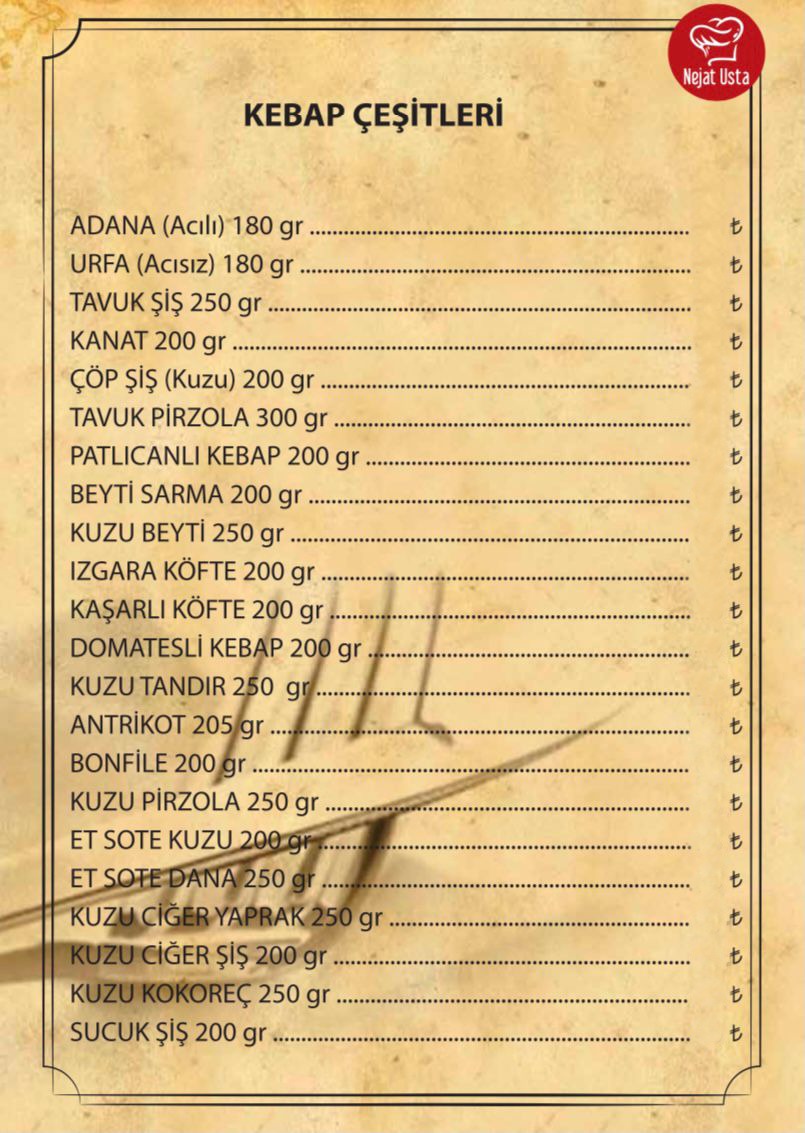 Nejat Usta
KEBAP ÇEŞİTLERİ
ADANA (Acılı) 180 gr ........................................................ ₺
URFA (Acısız) 180 gr ......................................................... ₺
TAVUK ŞİŞ 250 gr .............................................................. ₺
KANAT 200 gr ................................................................... ₺
ÇÖP ŞİŞ (Kuzu) 200 gr ...................................................... ₺
TAVUK PİRZOLA 300 gr .................................................... ₺
PATLICANLI KEBAP 200 gr ................................................ ₺
BEYTİ SARMA 200 gr ........................................................ ₺
KUZU BEYTİ 250 gr ........................................................... ₺
IZGARA KÖFTE 200 gr ...................................................... ₺
KAŞARLI KÖFTE 200 gr ..................................................... ₺
DOMATESLİ KEBAP 200 gr ............................................... ₺
KUZU TANDIR 250 gr ....................................................... ₺
ANTRİKOT 205 gr .............................................................. ₺
BONFİLE 200 gr ................................................................ ₺
KUZU PİRZOLA 250 gr ...................................................... ₺
ET SOTE KUZU 200 gr ....................................................... ₺
ET SOTE DANA 250 gr ...................................................... ₺
KUZU CİĞER YAPRAK 250 gr ............................................ ₺
KUZU CİĞER ŞİŞ 200 gr .................................................... ₺
KUZU KOKOREÇ 250 gr .................................................... ₺
SUCUK ŞİŞ 200 gr ............................................................. ₺